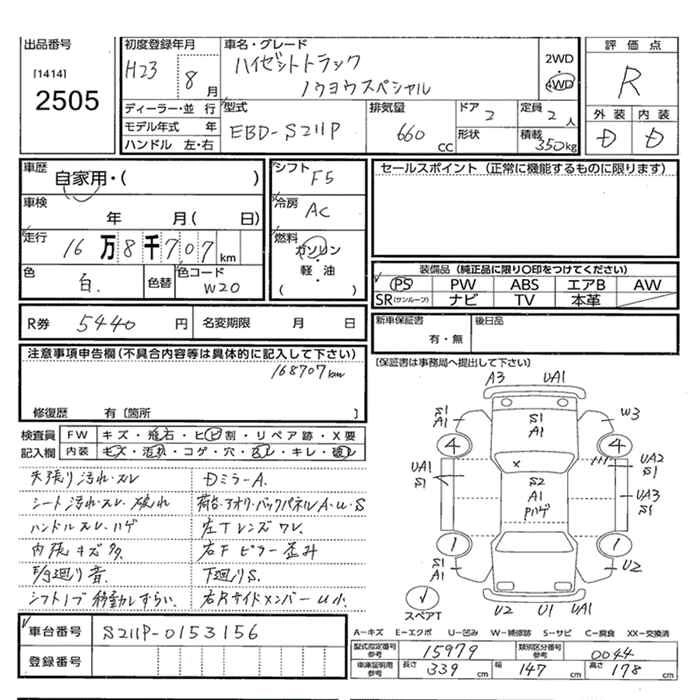 出品番号
[1414]
2505
初度登録年月
H23 8月
車名・グレード
ハイゼットトラック
ノウヨウスペシャル
2WD
・
4WD
評価点
R
外装 内装
D D
ディーラー・並行
モデル年式 年
ハンドル 左・右
型式
EBD-S211P
排気量
660 CC
ドア 2
形状
定員 2人
積載 350kg
車歴
自家用・( )
車検
年 月( 日)
走行
16万8千707km
色
白.
色替
色コード
W20
シフト
F5
冷房
AC
燃料
ガソリン
・
軽・油
・
( )
セールスポイント (正常に機能するものに限ります)
装備品 (純正品に限り○印をつけてください)
PS PW ABS エアB AW
SR(サンルーフ) ナビ TV 本革
R券 5440円 名変期限 月 日
新車保証書
有・無
後日品
[保証書は事務局へ提出して下さい]
注意事項申告欄(不具合内容等は具体的に記入して下さい)
168707km
修復歴 有〔箇所 〕
検査員
記入欄
FW キズ・飛石・ヒビ割・リペア跡・X要
内装 キズ・汚れ・コゲ・穴・スレ・キレ・破レ
天張り汚れ・スレ
シート汚れ・スレ・破れ
ハンドルスレ・ハゲ
内張キズ多
E/g廻り音.
シフトノブ移動しずらい.
DミラーA.
荷台・アオリ・バックパネルA・U・S
左Tレンズワレ.
右Fピラー歪み
下廻りS.
右Rサイドメンバー U小.
A3 UA1
S1
A1
S1
A1
W3
4
4
UA1
S1
S2
A1
Pハゲ
UA2
S1
UA3
S1
1
1
S1
A1
U2
スペアT
U2 U1 UA1
車台番号 S211P-0153156
登録番号
A－キズ E－エクボ U－凹み W－補修跡 S－サビ C－腐食 XX－交換済
型式指定番号
参考
15979
類別区分番号
参考
0044
車庫証明用
参考
長さ 339cm 幅 147cm 高さ 178cm